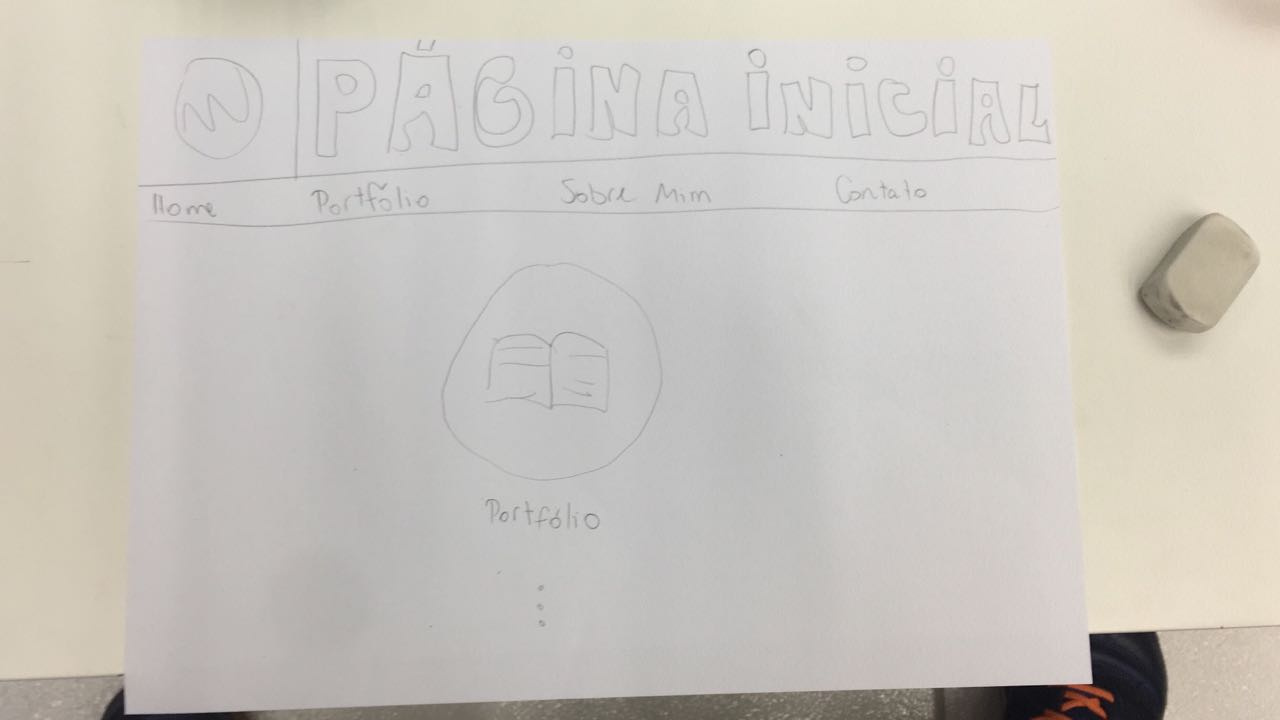 PÁGINA INICIAL
Home Portfólio Sobre Mim Contato
Portfólio